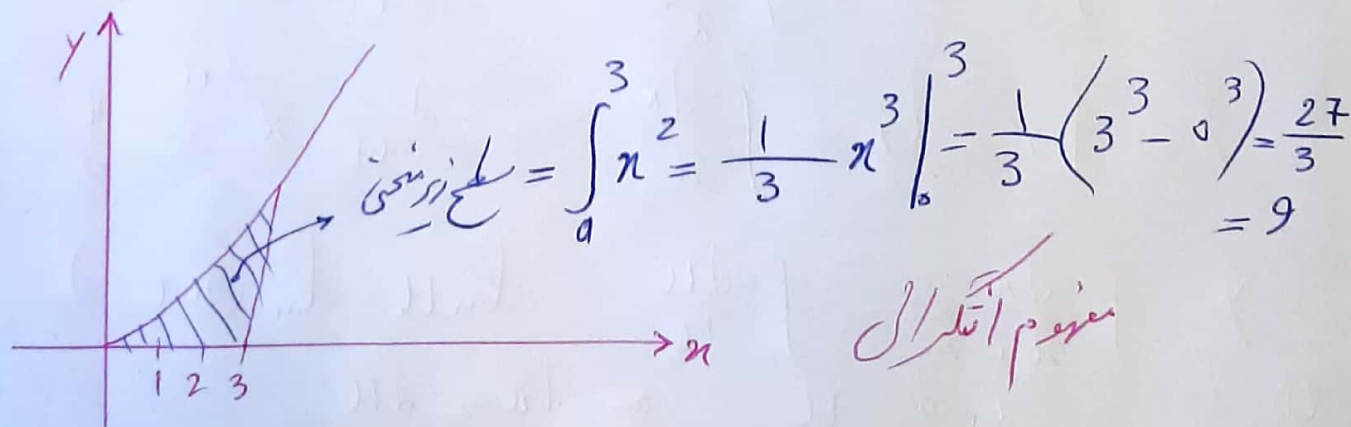 y
سطح زیر منحنی = ∫₀³ x² = 1/3 x³ |₀³ = 1/3 (3³ - 0³) = 27/3
= 9
x
1 2 3
مفهوم انتگرال